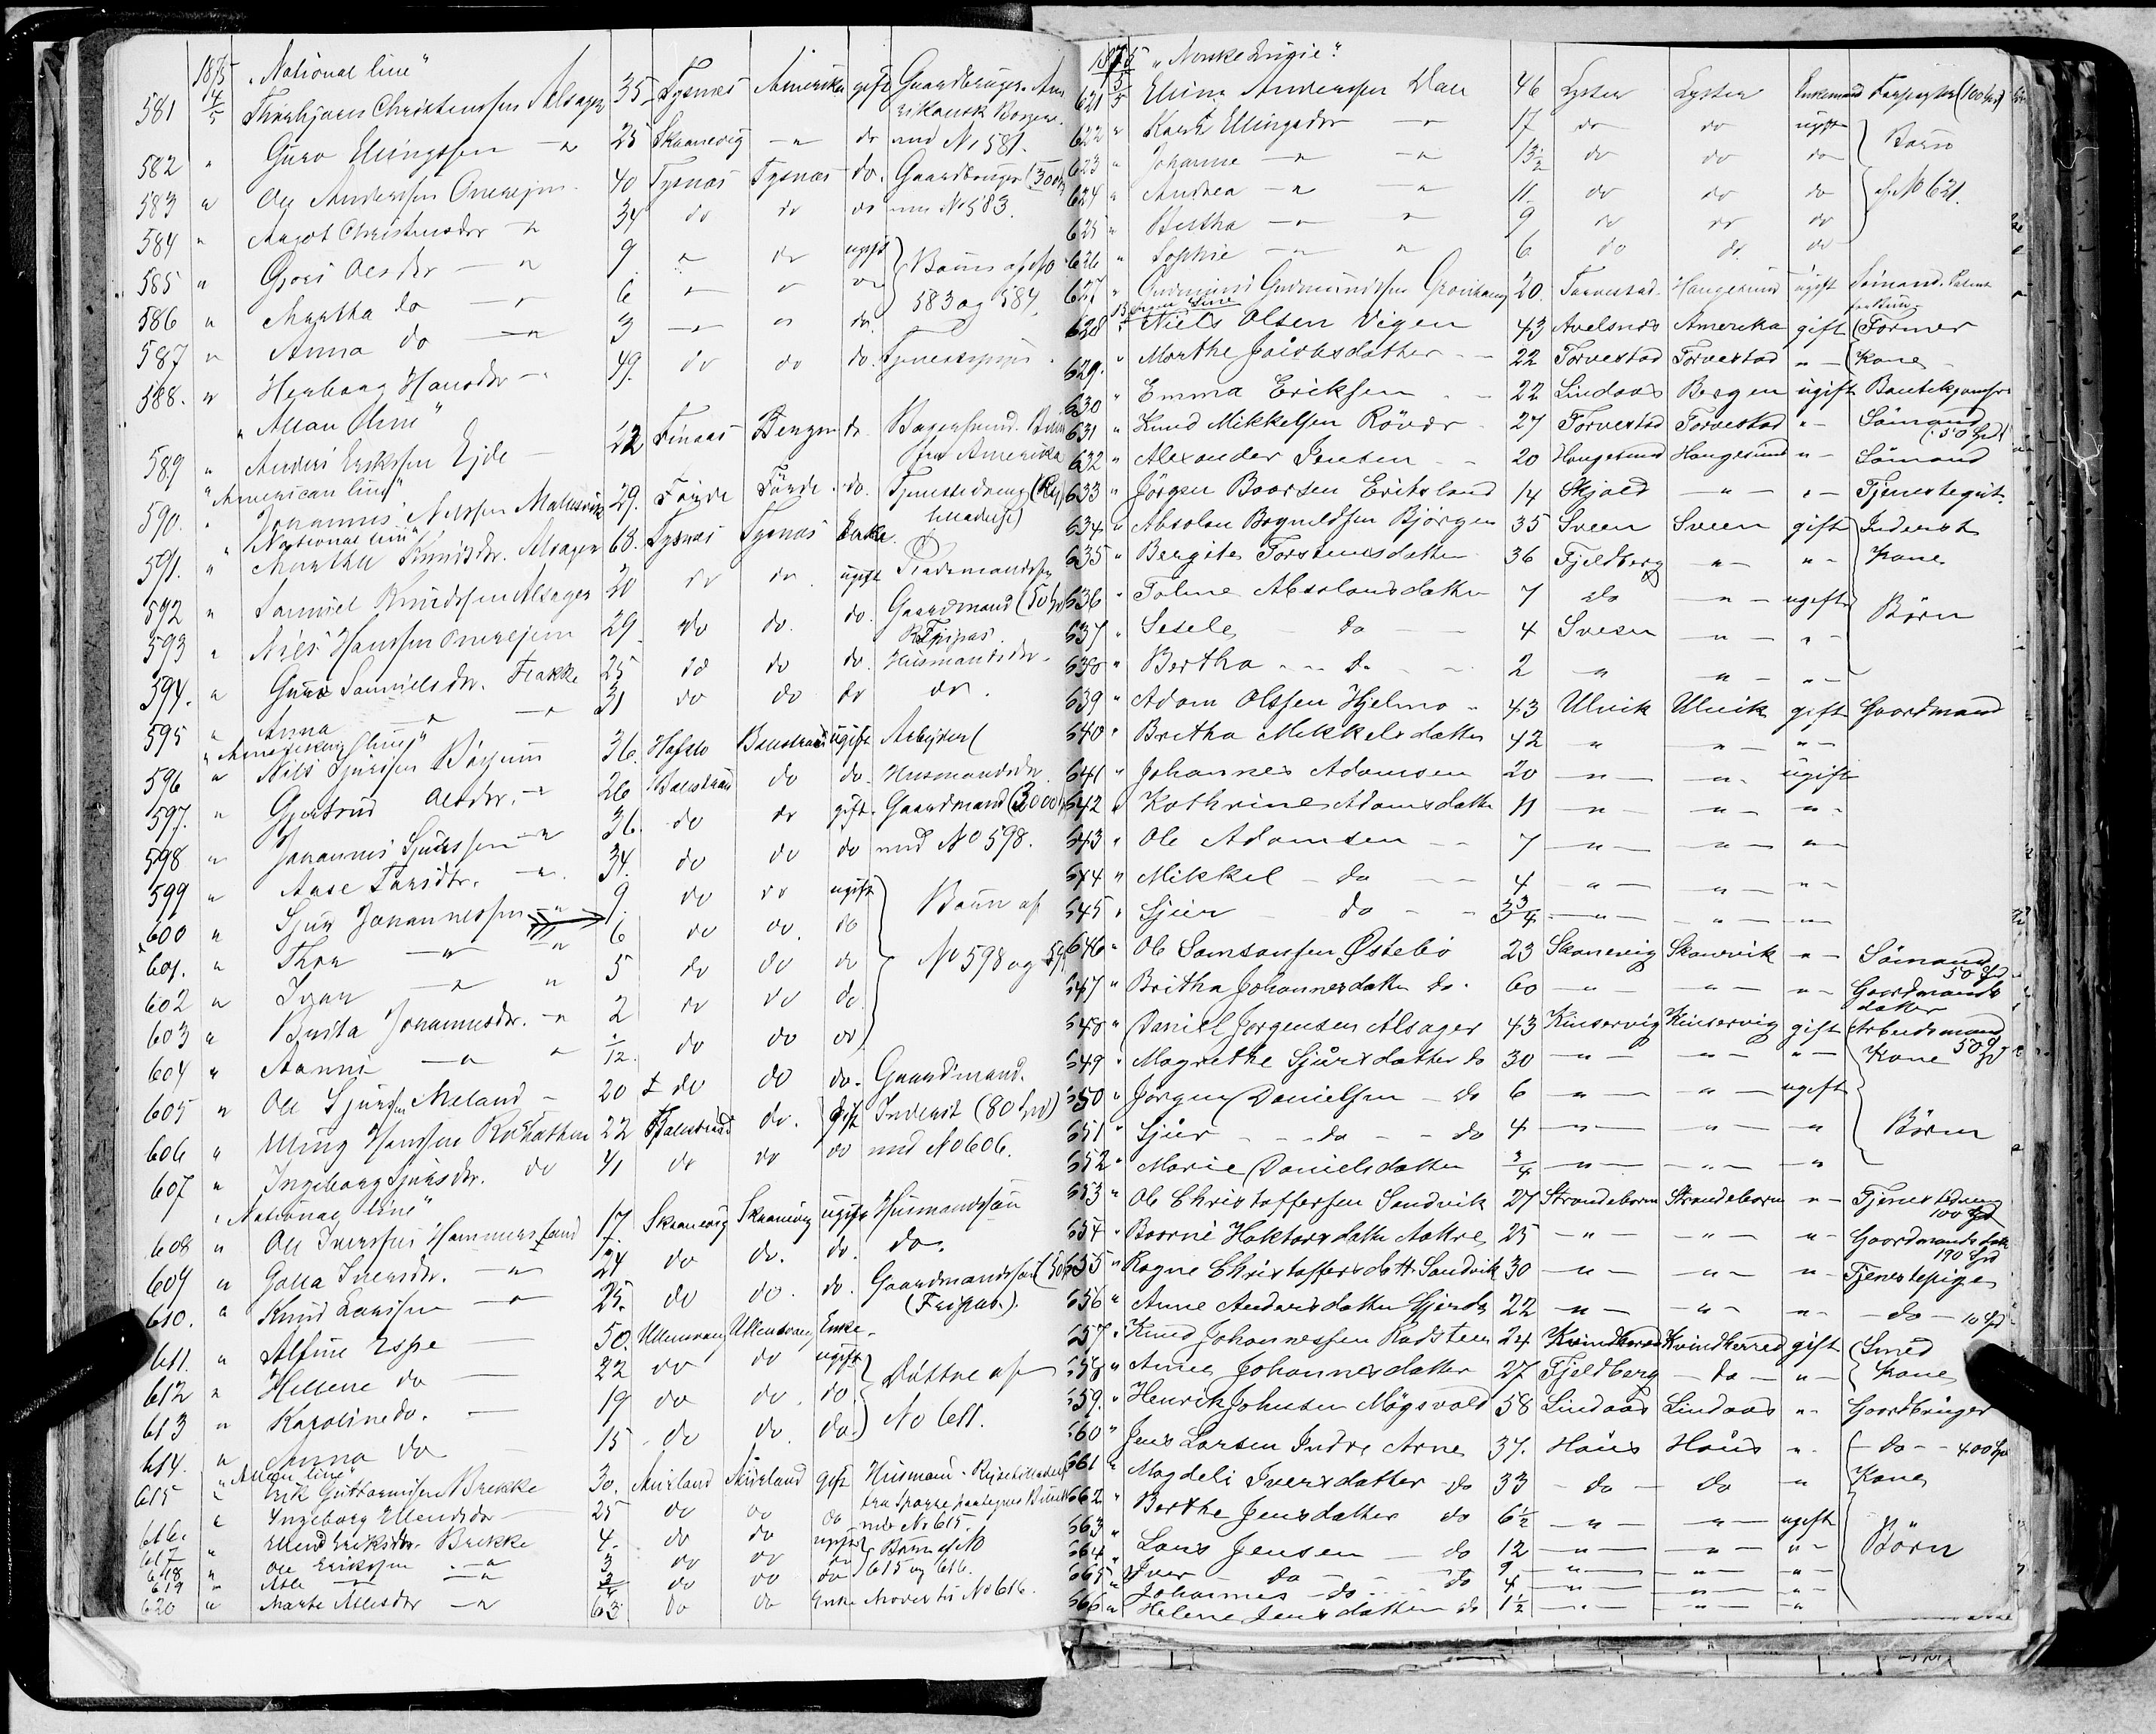 1875 "National line"
581 14/5 Thorbjørn Christensen Alsager 35 Tysnes Amerika gift Gaardbruger. Am
erikansk Borger.
582 " Guro Ellingsen — " 25 Skaanevig — " do med No 581.
583 " Ole Anderssen Onerejm 40 Tysnæs Tysnæs do. Gaardbruger (300
584 " Margot Christensdr — " 34 do do do med No 583.
585 " Gjøri Olesdr — " 9 " do ugift Børn af No
586 " Martha do — " 6 — " " do 583 og 584.
587 " Anna do — " 3 — " " do.
588. " Herborg Hansdr — " 49. do do do. Tjenestepige
"Allan Line"
589 " Anders Eriksen Ejde — 22 Finaas Bergen do.
fra Amerika
"American line"
590. " Johannes Nilssen 29. Førde Førde do. Tjenestedreng
"National line"
591. " Marthe Knudsdr. Alsager 68. Tysnæs Tysnæs Enke.
592 " Samuel Knudssen Alsager 20 do do ugift
593 " Nils Hanssen Onerejm 29 do do. do. Gaardmand (50
Fripas.
594. " Guro Samuelsdr. Flakke 25 do do do. Husmandsdr.
595 " Anna — " — " 31 do do do do.
596 " Nils Sjurssen Børsum 36. Hafslo Balestrand ugift Arbejder
597. " Gjertrud Olesdr. — " 26 Balestrand do do. Husmandsdr.
598 " Johannes Sjurssen — " 36. do do gift. Gaardmand (3000
599 " Aase Larsdtr. — " 34. do do do med No 598.
600 " Sjur Johannessen — " 9 do do ugift Børn af
601. " Thor — " — " 6 do do do No 598 og 599
602 " Ivar — " " 5 do do do
603 " Brita Johannesdr. — " 2 do do do
604 " Aanni — " " /12. do do do
605 " Ole Sjurssen Meland — 20 do do do. Gaardmand.
606 " Elling Hanssen 22 Balestrand do. gift Inderst (80 Spd)
607 " Ingeborg Sjursdr. do 41 do do do med No 606.
"National line"
608 " Ole Iverssen Hammersland 17. Skaanevig Skaanevig ugift Husmandssøn
609 " Golla Iversdr. — " 24 do do. do. do.
610. " Knud Larssen — " 25. do do. do. Gaardmandssøn (50
(Fripas.).
611. " Alfine Espe — 50. Ullensvang Ullensvang Enke.
612 " Hellene do — 22 do do ugift Døttre af
613 " Karoline do. — 19 do do. do No 611.
614. " Anna do — 15 do do. do.
"Allan line"
615 " Erik Guttormsen Brekke 30. Aurland Aurland gift Husmand.
616. " Ingeborg Ellendsdr — 25 do do do med No 615.
617 " Ellend Eriksdr. Brekke 4. do do ugift Børn af No
618 " Ole Erikssen — " 3 do do do 615 og 616.
619 " Atle — " — " 3/4 do do do
620 " Marte Atlesdr — " 63 do do Enke Moder til No 616.
1875 "Norske Linie"
621 5/5 Elling Anderssen Dale 46 Lyster Lyster Enkemand (100 Spd)
622 " Kari Ellingsdr — " 17 do do ugift Børn
623 " Johanne — " — " 13 1/2 do do do
624 " Andrea — " — " 11. do do do af No 621.
625 " Bertha — " " 9 do do do
626 " Sophie — " " 6 do do. do
627 " Gudmund Gudmundsen Gronhaug 20. Torvestad Haugesund ugift Sømand.
628 " Niels Olsen Vigen 43 Avelsnæs Amerika gift Farmer
629. " Marthe Jacobsdatter — 22 Torvestad Torvestad " — Kone
630 " Emma Eriksen — 22 Lindaas Bergen ugift
631 " Knud Mikkelsen Røvær 27 Torvestad Torvestad " — Sømand
(50 Spd)
632 " Alexander Jensen — 20 Haugesund Haugesund " — Sømand
633 " Jørgen Baarsen Eriksland 14 Skjold — " — " — Tjenestegut
634 " Absolon Bogneldsen Bjørgen 35 Sveen Sveen gift Inderst
635 " Bergite Torstensdatter 36 Fjeldberg — " — " — Kone
636 " Toline Absolonsdatter 7 Do — " — ugift Børn
637 " Sesele — do — 4 Sveen — " — " —
638 " Bertha — do — 2 " — " — " —
639 " Adam Olssen Hjelmo — 43 Ulvik Ulvik gift Gaardmand
640 " Britha Mikkelsdatter 42 " — " — " —
641 " Johannes Adamsen 20 — " — — " — ugift
642 " Kathrine Adamsdatter 11 — " — — " — " —
643 " Ole Adamsen — 7 — " — — " — " —
644 " Mikkel — do — 4 — " — — " — " —
645 " Sjur do — 3/4 — " — — " — " —
646 " Ole Samsonsen Østebø 23 Skonevig Skonevik " — Sømand
50 Spd
647 " Britha Johannesdatter do. 60 — " — — " — " — Gaardmands
datter
648 " Daniel Jørgensen Alsager 43 Kinservig Kinservig gift Arbeidsmand
50 Spd
649 " Magrethe Sjursdatter do 30 — " — — " — " — Kone
650 " Jørgen Danielsen — do 6 — " — — " — ugift
651 " Sjur — do — do 4 — " — — " — " Børn
652 " Marie Danielsdatter 3/4 — " — — " — "
653 " Ole Christoffersen Sandvik 27 Strandeborm Strandeborm " — Tjenestedreng
100 Spd
654 " Baarni Haktorsdatter Aakre 25 — " — — " — " — Gaardmandsdatt
190 Spd
655 " Ragne Christoffersdatt. Sandvik 30 — " — — " — " — Tjenestepige
656 " Anne Andersdatter Gjerde 22 — " — — " — " — — do — 10 Spd
657 " Knud Johannessen Radsteen 24 Kvindherred Kvindherred gift Smed
658 " Anne Johannesdatter 27 Fjeldberg — do — " — Kone
659. " Henrik Johnsen Mögsvold 58 Lindaas Lindaas " Gaardbruger
660 " Jens Larsen Indre Arne 37. Haus Haus " — do — 400 Spd
661 " Magdeli Iversdatter do 33 — do — do " Kone
662 " Berthe Jensdatter do 6 1/2 — " — — " — ugift
663 " Lars Jensen — do 12 — " — — " — " — Børn
664 " Iver — do — do 9 — " — — " — " —
665 " Johannes do — do 4 — " — — " — " —
666 " Helene Jensdatter do 1 1/2 — " — — " — "